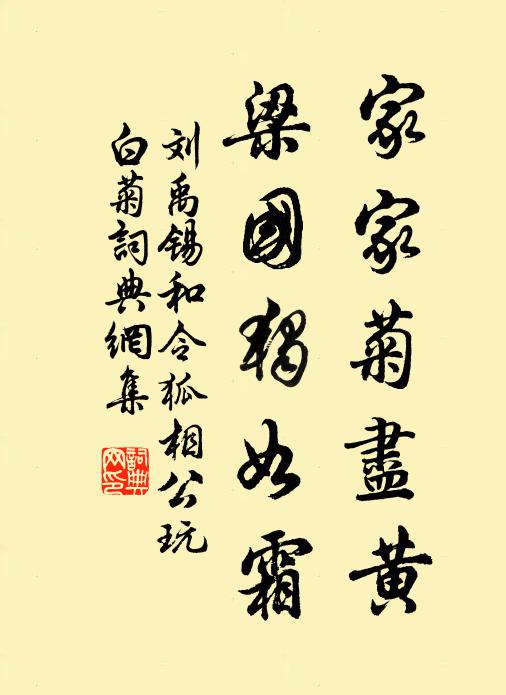 家家菊盡黄
梁國獨如霜
刘禹锡和令狐相公玩
白菊詞典網集
詞典
网印